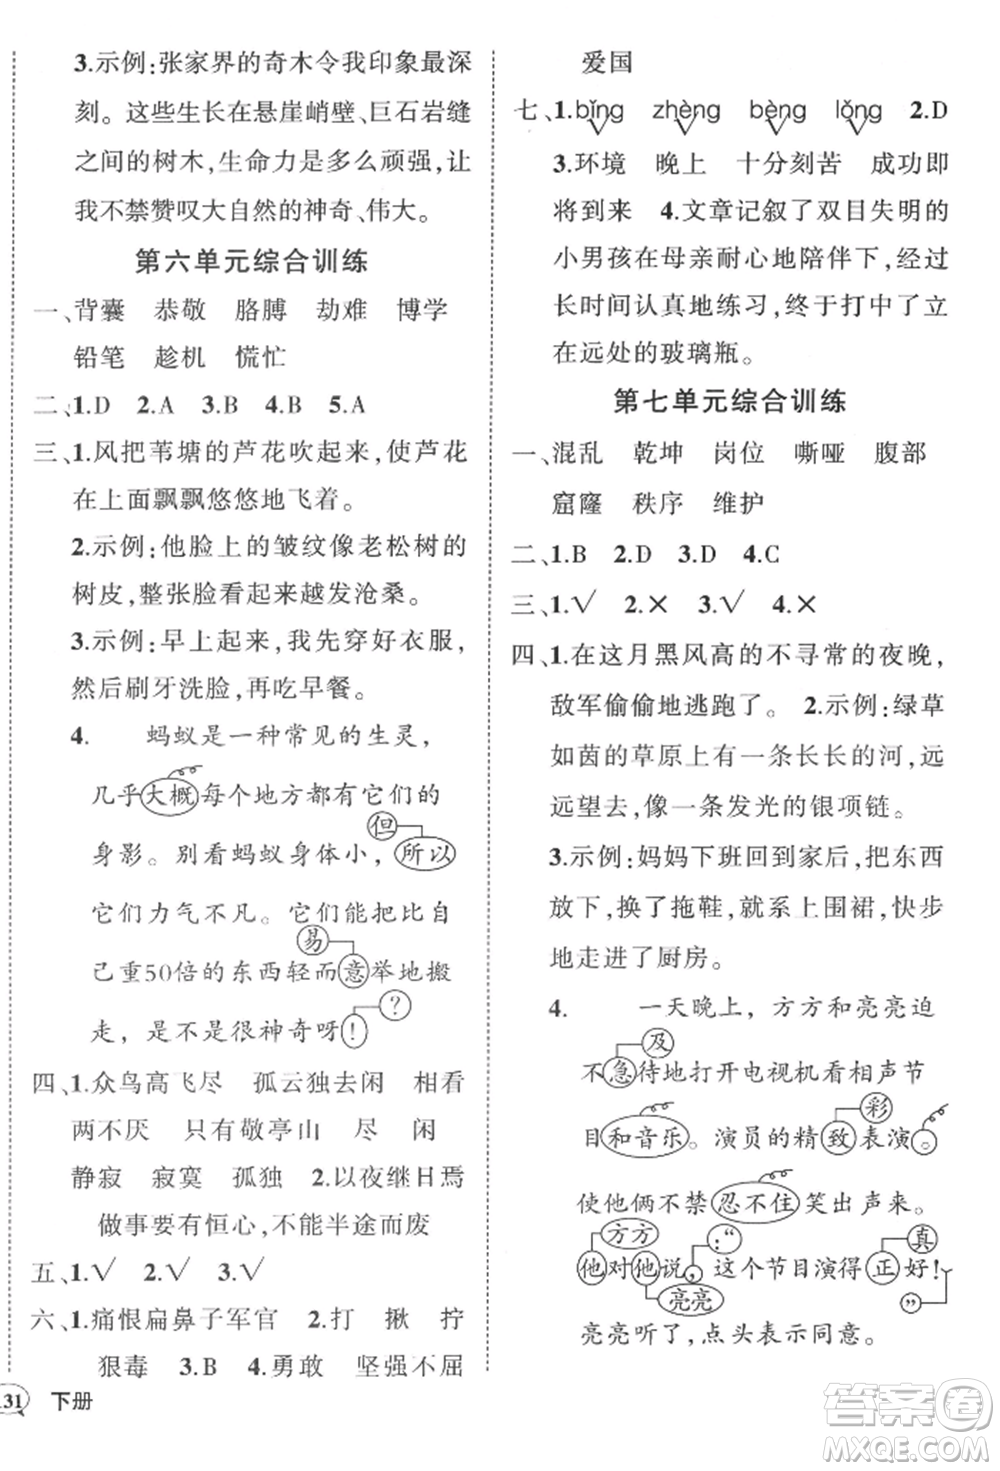 3.示例:张家界的奇木令我印象最深
刻。这些生长在悬崖峭壁、巨石岩缝
之间的树木,生命力是多么顽强,让
我不禁赞叹大自然的神奇、伟大。
第六单元综合训练
一、背囊 恭敬 胳膊 劫难 博学
铅笔 趁机 慌忙
二、1.D 2.A 3.B 4.B 5.A
三、1.风把苇塘的芦花吹起来,使芦花
在上面飘飘悠悠地飞着。
2.示例:他脸上的皱纹像老松树的
树皮,整张脸看起来越发沧桑。
3.示例:早上起来,我先穿好衣服,
然后刷牙洗脸,再吃早餐。
4. 蚂蚁是一种常见的生灵,
几乎大概每个地方都有它们的
但
身影。别看蚂蚁身体小,所以
它们力气不凡。它们能把比自
易
己重50倍的东西轻而意举地搬
?
走,是不是很神奇呀!
四、1.众鸟高飞尽 孤云独去闲 相看
两不厌 只有敬亭山 尽 闲
静寂 寂寞 孤独 2.以夜继日焉
做事要有恒心,不能半途而废
五、1.√ 2.√ 3.√
六、1.痛恨扁鼻子军官 2.打 揪 拧
狠毒 3.B 4.勇敢 坚强不屈
31 下册
爱国
七、1.bǐng zhèng bèng lǒng 2.D
3.环境 晚上 十分刻苦 成功即
将到来 4.文章记叙了双目失明的
小男孩在母亲耐心地陪伴下,经过
长时间认真地练习,终于打中了立
在远处的玻璃瓶。
第七单元综合训练
一、混乱 乾坤 岗位 嘶哑 腹部
窟窿 秩序 维护
二、1.B 2.D 3.D 4.C
三、1.√ 2.× 3.√ 4.×
四、1.在这月黑风高的不寻常的夜晚,
敌军偷偷地逃跑了。 2.示例:绿草
如茵的草原上有一条长长的河,远
远望去,像一条发光的银项链。
3.示例:妈妈下班回到家后,把东西
放下,换了拖鞋,就系上围裙,快步
地走进了厨房。
4. 一天晚上,方方和亮亮迫
及
不急待地打开电视机看相声节
彩
目和音乐。演员的精致表演。
使他俩不禁忍不住笑出声来。
方方 :“ 真
他对他说,这个节目演得正好!
亮亮 ”
亮亮听了,点头表示同意。
答案卷
MXQE.COM